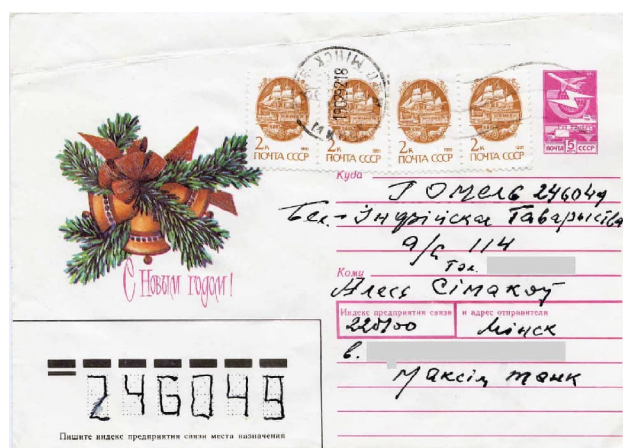 МІНСК
19099218
2 к 1991
ПОЧТА СССР
2 к 1991
ПОЧТА СССР
2 к 1991
ПОЧТА СССР
2 к 1991
ПОЧТА СССР
ПОЧТА 15 к СССР
С Новым годом!
Куда Гомель 246049
Бел.-Індыйскае Таварыства
а/с 114
Кому Тэл.
Алесь Сімакоў
Индекс предприятия связи и адрес отправителя
220100 Мінск
в.
Максім Танк
246049
Пишите индекс предприятия связи места назначения